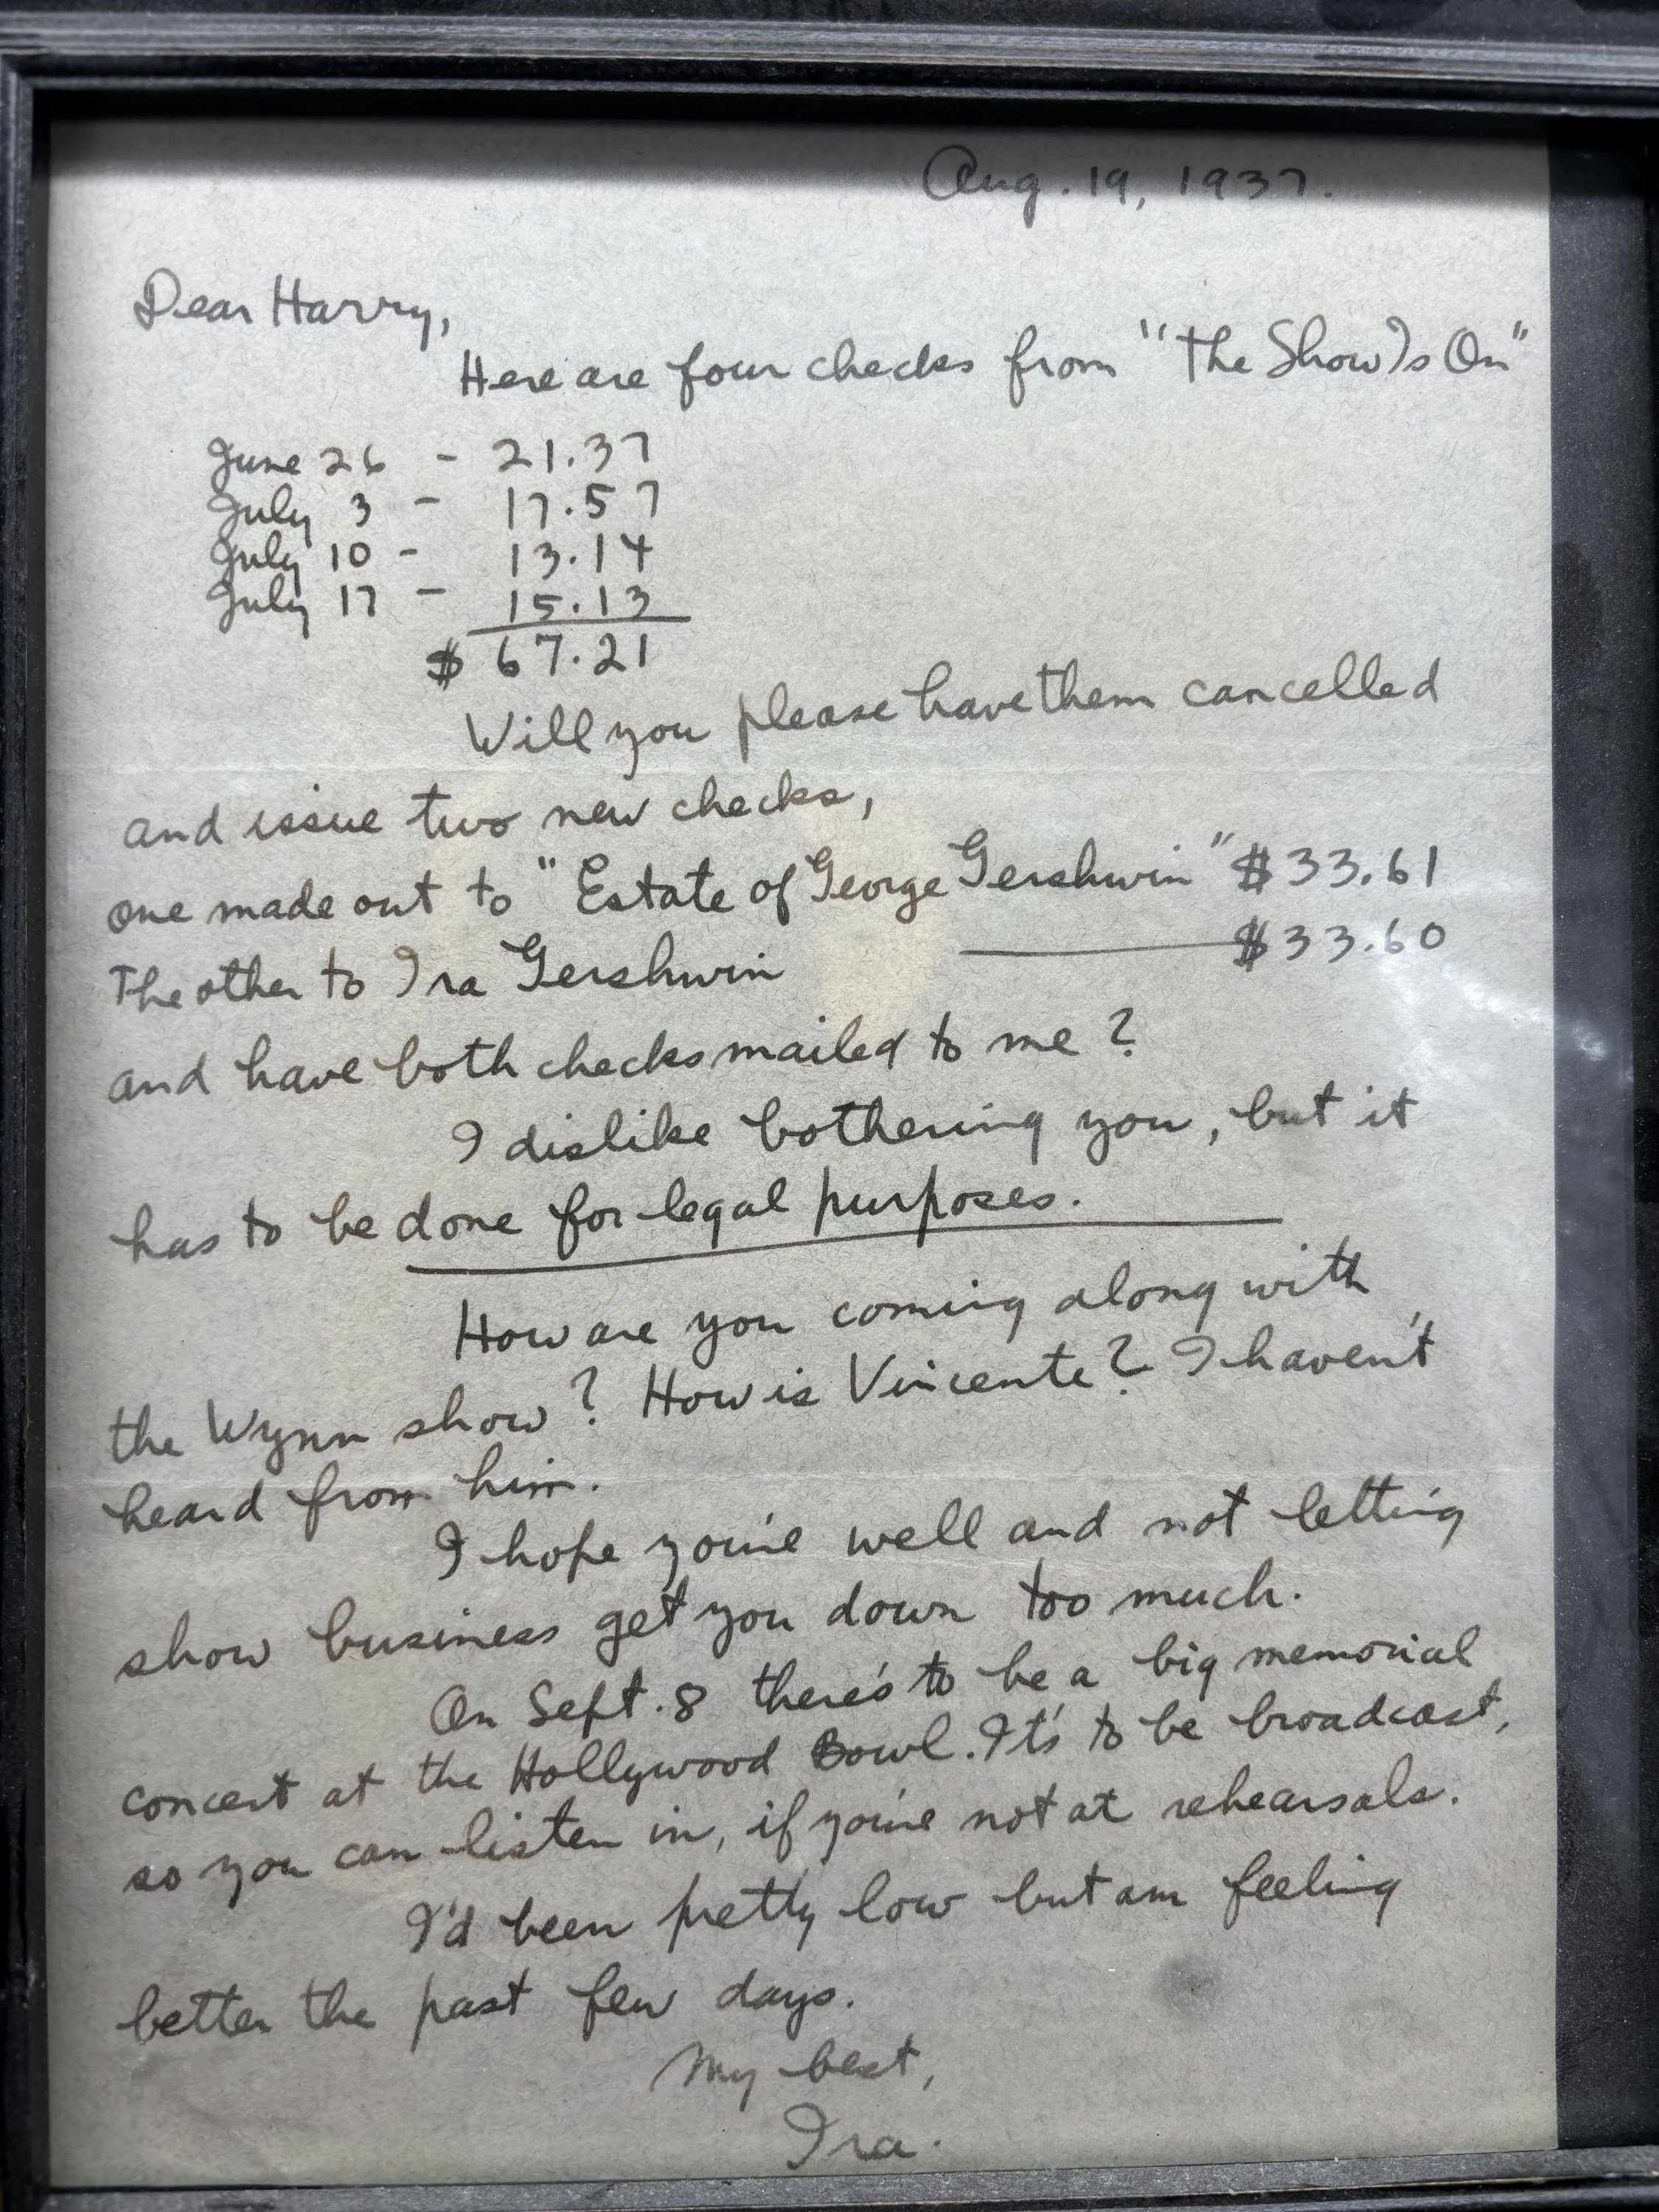 Aug. 19, 1937.
Dear Harry,
Here are four checks from "The Show Is On"
June 26 - 21.37
July 3 - 17.57
July 10 - 13.14
July 17 - 15.13
$ 67.21
Will you please have them cancelled
and issue two new checks,
one made out to "Estate of George Gershwin" $33.61
The other to Ira Gershwin $33.60
and have both checks mailed to me?
I dislike bothering you, but it
has to be done for legal purposes.
How are you coming along with
the Wynn show? How is Vincente? I haven't
heard from him.
I hope you're well and not letting
show business get you down too much.
On Sept. 8 there's to be a big memorial
concert at the Hollywood Bowl. It's to be broadcast,
so you can listen in, if you're not at rehearsals.
I'd been pretty low but am feeling
better the past few days.
My best,
Ira.